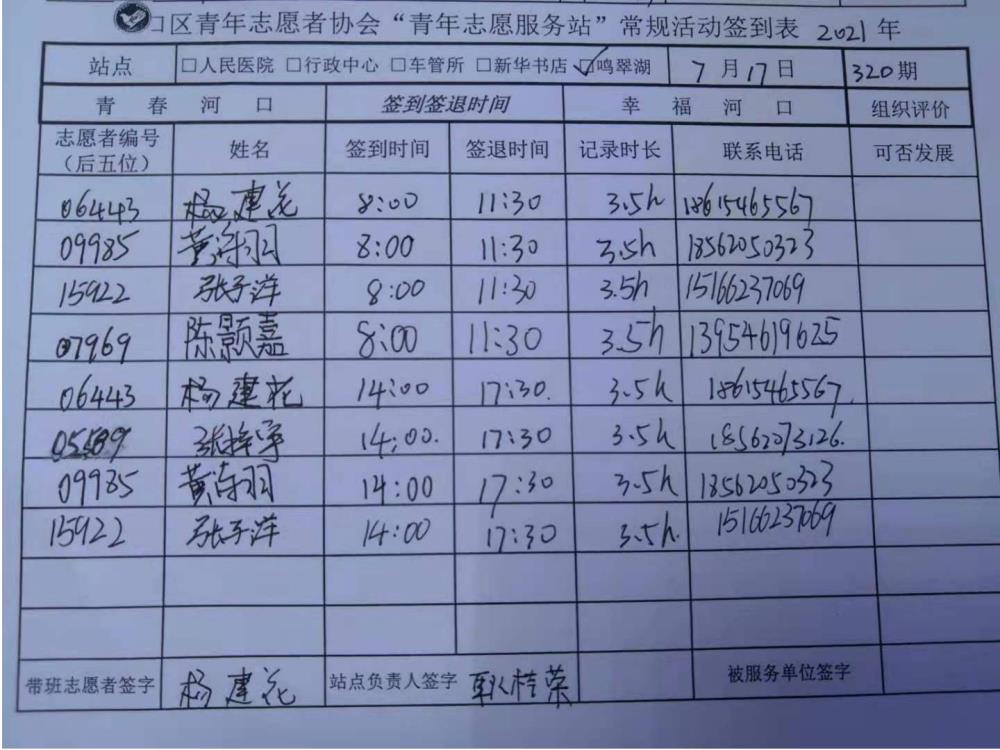 口区青年志愿者协会“青年志愿服务站”常规活动签到表 2021年
站点 □人民医院 □行政中心 □车管所 □新华书店 ☑鸣翠湖 7月17日 320期
青春河口 签到签退时间 幸福河口 组织评价
志愿者编号（后五位） 姓名 签到时间 签退时间 记录时长 联系电话 可否发展
06443 杨建花 8:00 11:30 3.5h 18615465567
09985 黄海羽 8:00 11:30 3.5h 18562050323
15922 张子洋 8:00 11:30 3.5h 15166237069
07969 陈颢嘉 8:00 11:30 3.5h 13954619625
06443 杨建花 14:00 17:30. 3.5h 18615465567.
张梓宇 14:00. 17:30 3.5h 18562073126.
09985 黄海羽 14:00 17:30 3.5h 18562050323
15922 张子洋 14:00 17:30 3.5h. 15166237069
带班志愿者签字 杨建花 站点负责人签字 耿桂荣 被服务单位签字